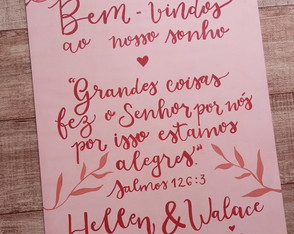 Bem-vindos
ao nosso sonho
"Grandes coisas
fez o Senhor por nós
por isso estamos
alegres."
Salmos 126:3
Hellen & Walace